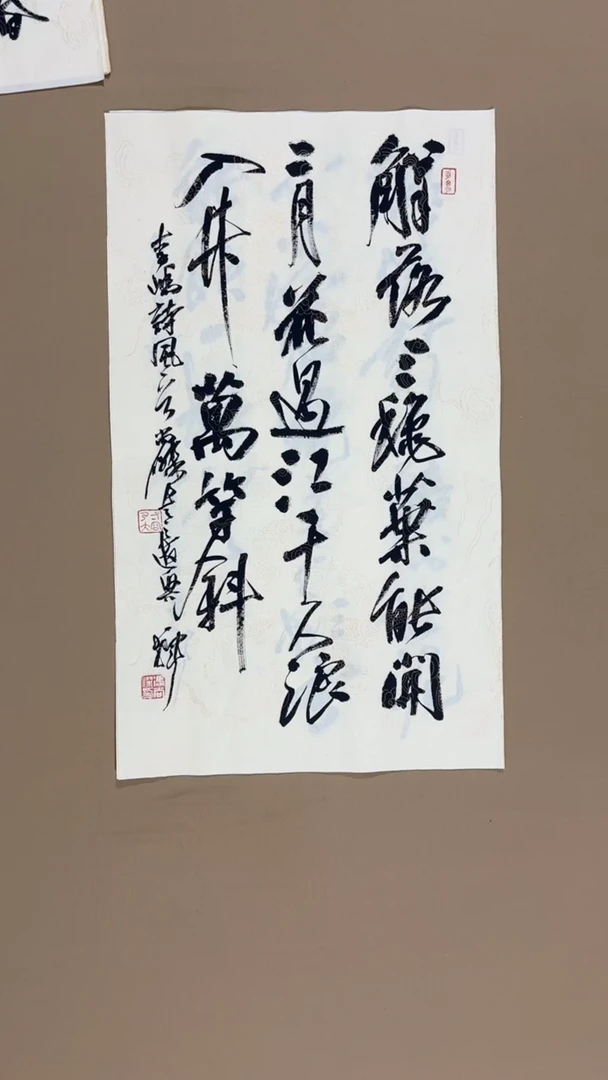 解落三秋葉能開
二月花過江千尺浪
入竹萬竿斜
李嶠詩風